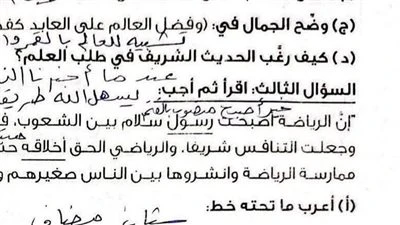 (ج) وضّح الجمال في: (وفضل العالم على العابد كفض
تشبيه للعالم بالقمر و
(د) كيف رغّب الحديث الشريف في طلب العلم؟
عند ما أخبرنا ان
السؤال الثالث: اقرأ ثم أجب: يسهل الله طريقه
خبر أصبح منصوب بالفتحة
إنّ الرياضة أصبحت رسول سلام بين الشعوب، ف
وجعلت التنافس شريفا، والرياضي الحق أخلاقه حس
ممارسة الرياضة وانشروها بين الناس صغيرهم و
(أ) أعرب ما تحته خط:
مضاف